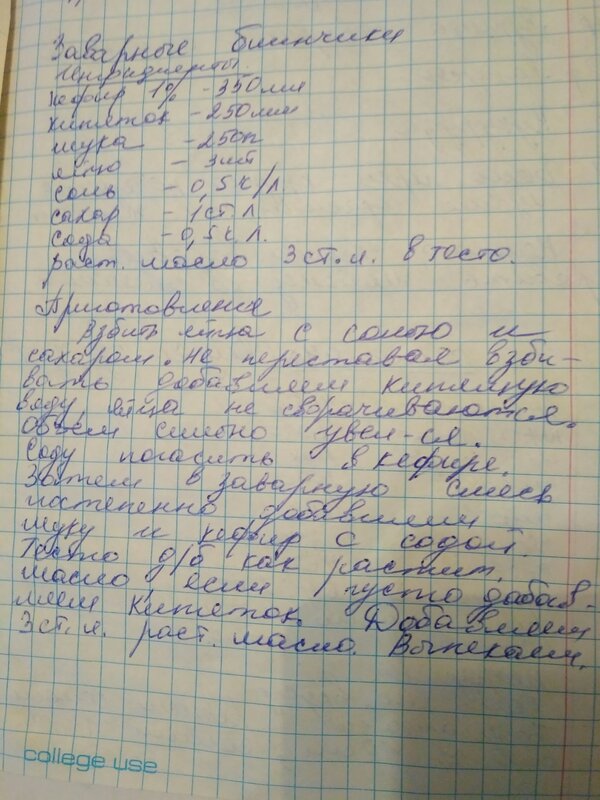 Заварные блинчики
Ингридиенты.
кефир 1% - 350 мл
кипяток - 250 мл
мука - 250г
яйцо - 3 шт
соль - 0,5 ч/л.
сахар - 1 ст. л
сода - 0,5 ч. л.
раст. масло 3 ст. л. в тесто.
Приготовления
Взбить яйца с солью и
сахаром. Не переставая взби-
вать добавляем кипящую
воду, яйца не сворачиваются.
Объём сильно увел-ся.
Соду погасить в кефире.
Затем в заварную смесь
постепенно добавляем
муку и кефир с содой.
Тесто д/б как растит.
масло, если густо добав-
ляем кипяток. Добавляем
3 ст. л. раст. масло. Выпекаем.
college use